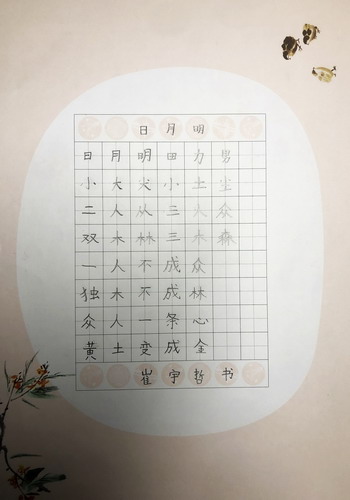 日月明
日月明田力男
小大尖小土尘
二人从三人众
双木林三木森
一人不成众
独木不成林
众人一条心
黄土变成金
崔宇哲书